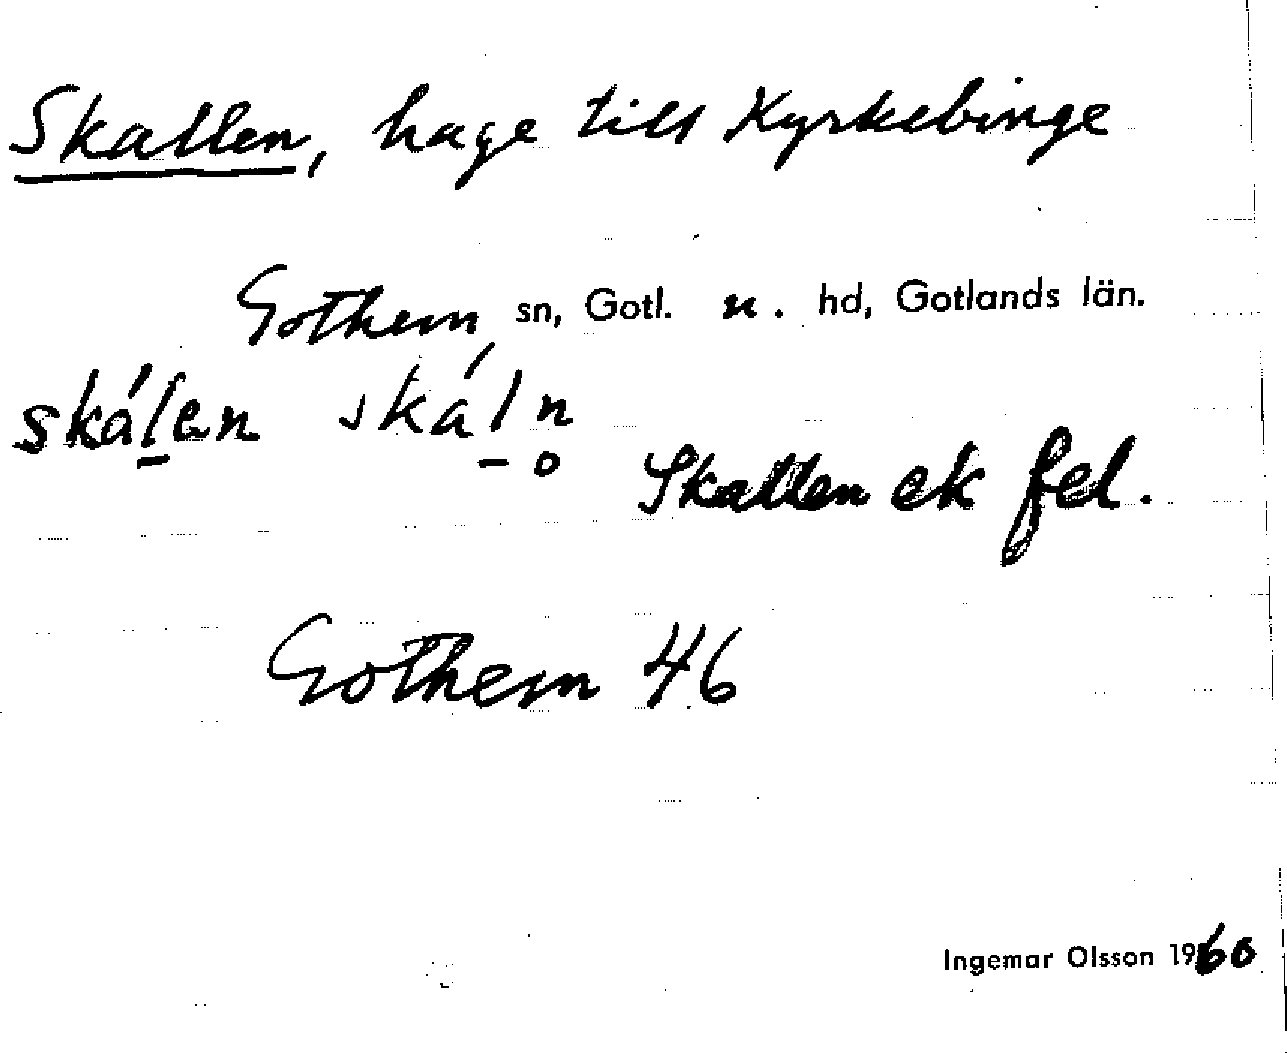 Skallen, hage till Kyrkebinge
Gothem sn, Gotl. n. hd, Gotlands län.
skáḻen skáḻn̥
Skallen ek fel.
Gothem 46
Ingemar Olsson 1960